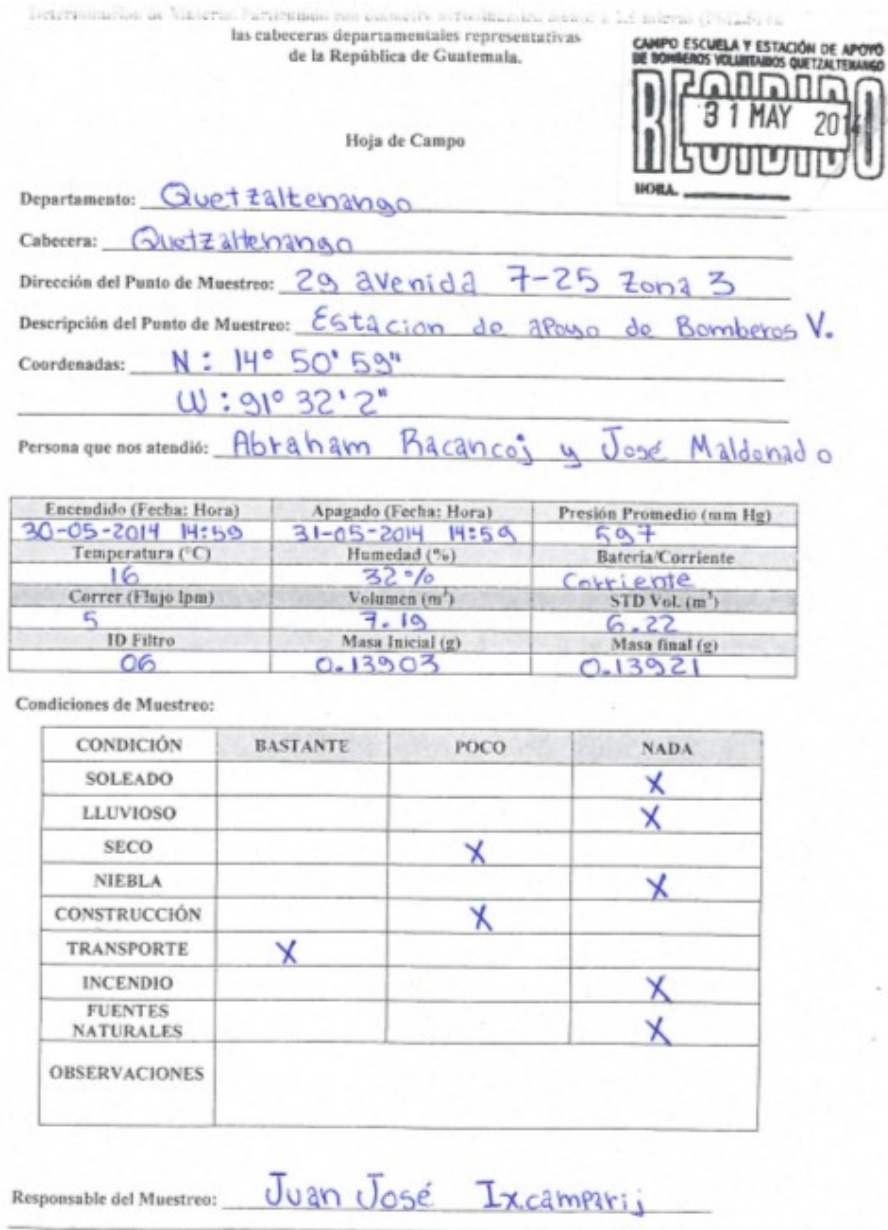 las cabeceras departamentales representativas
de la República de Guatemala.
CAMPO ESCUELA Y ESTACIÓN DE APOYO
DE BOMBEROS VOLUNTARIOS QUETZALTENANGO
RECIBIDO
31 MAY 2014
HORA.
Hoja de Campo
Departamento: Quetzaltenango
Cabecera: Quetzaltenango
Dirección del Punto de Muestreo: 29 avenida 7-25 Zona 3
Descripción del Punto de Muestreo: Estacion de apoyo de Bomberos V.
Coordenadas: N: 14° 50' 59"
W: 91° 32' 2"
Persona que nos atendió: Abraham Racancoj y José Maldonado
Encendido (Fecha: Hora) Apagado (Fecha: Hora) Presión Promedio (mm Hg)
30-05-2014 14:59 31-05-2014 14:59 597
Temperatura (°C) Humedad (%) Bateria/Corriente
16 32% Corriente
Correr (Flujo lpm) Volumen (m³) STD Vol. (m³)
5 7.19 6.22
ID Filtro Masa Inicial (g) Masa final (g)
06 0.13903 0.13921
Condiciones de Muestreo:
CONDICIÓN BASTANTE POCO NADA
SOLEADO X
LLUVIOSO X
SECO X
NIEBLA X
CONSTRUCCIÓN X
TRANSPORTE X
INCENDIO X
FUENTES
NATURALES X
OBSERVACIONES
Responsable del Muestreo: Juan José Ixcamparij